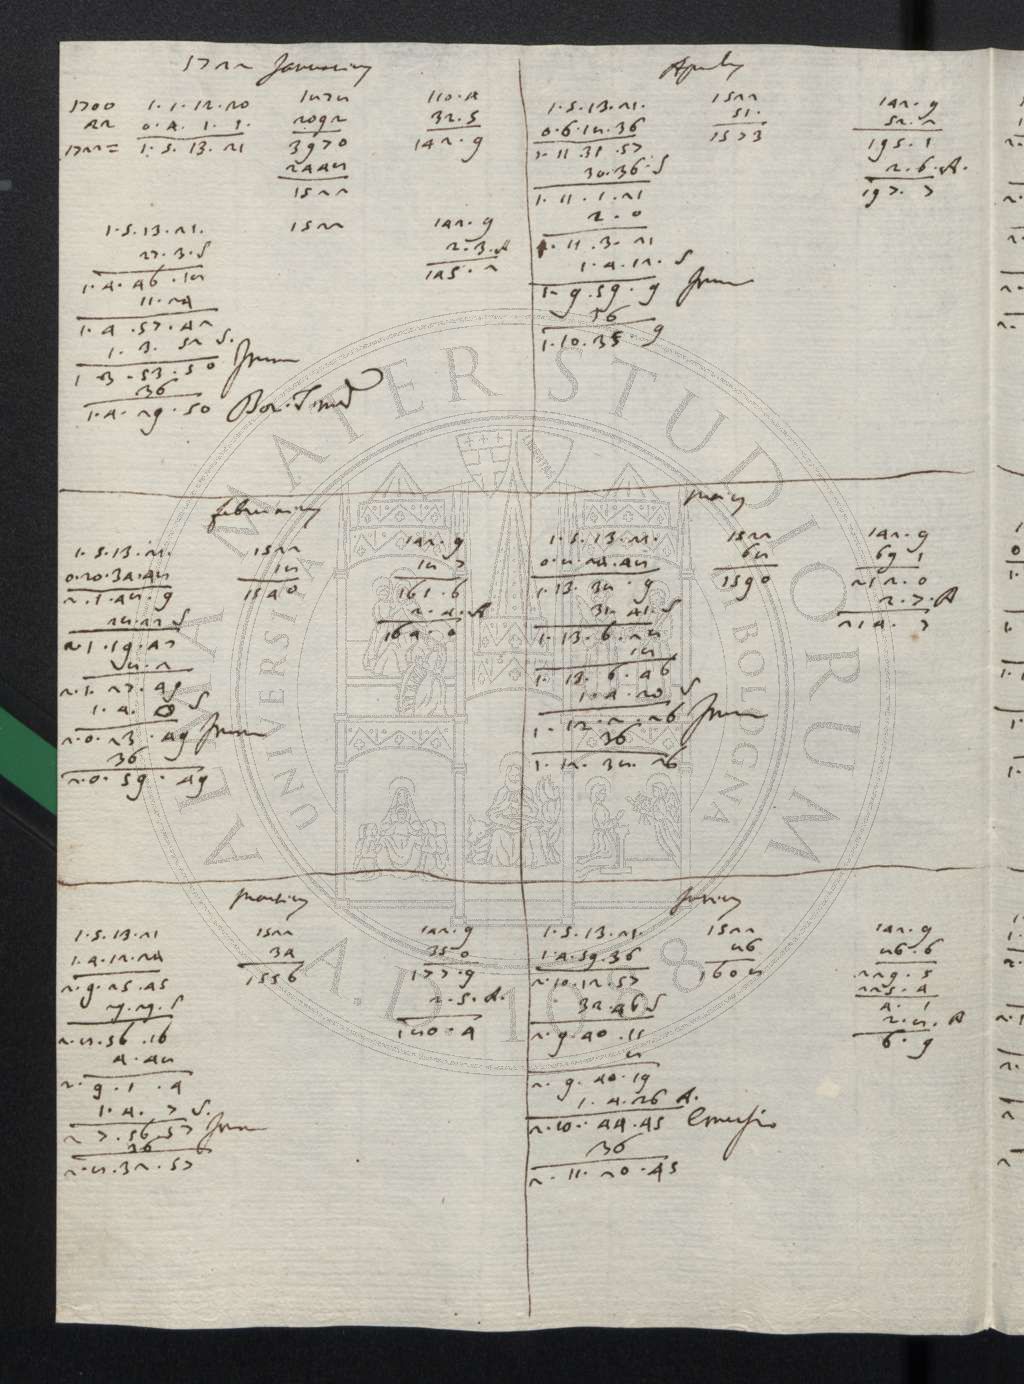 1722 Januarius
1700 1.1.12.20 1878 110.4
22 0.4.1.1. 2092 32.5
1722= 1.5.13.21 3970 142.9
2448
1522
1.5.13.21. 1522 142.9
27.3.S 2.3.A
1.4.46.18 145.2
11.24
1.4.57.42
1.3.52 S.
1.3.53.50
36
1.4.29.50
Aprilis
1.5.13.21. 1522 142.9
0.6.18.36 51. 52.2
1.11.31.57 1573 195.1
30.36.S 2.6.A.
1.11.1.21 197.7
2.0
1.11.3.21
1.4.12.S
1.9.59.9
36
1.10.35.9
februarius
1.5.13.21. 1522 142.9
0.20.34.48 18 18.7
2.1.48.9 1540 161.6
28.22 S 2.4.A
2.1.19.47 164.0
8.2
2.1.27.49
1.4.0 S
2.0.23.49
36
2.0.59.49
Maius
1.5.13.21. 1522 142.9
0.8.24.48 68 69.1
1.13.38.9 1590 212.0
31.41.S 2.7.A
1.13.6.28 214.7
18
1.13.6.46
1.4.20 S
1.12.2.26
36
1.12.38.26
Martius
1.5.13.21 1522 142.9
1.4.12.24 34 35.0
2.9.25.45 1556 177.9
29.29.S 2.5.A.
2.8.56.16 180.4
4.48
2.9.1.4
1.4.7 S.
2.7.56.57
36
2.8.32.57
Junius
1.5.13.21. 1522 142.9
1.4.59.36 86 86.6
2.10.12.57 1608 229.5
32.46 S 225.4
2.9.40.11 4.1
8 2.8.A
2.9.40.19 6.9
1.4.26 A.
2.10.44.45 Emersio
36
2.11.20.45
ALMA MATER STUDIORUM
A.D. 1088
UNIVERSITÀ DI BOLOGNA